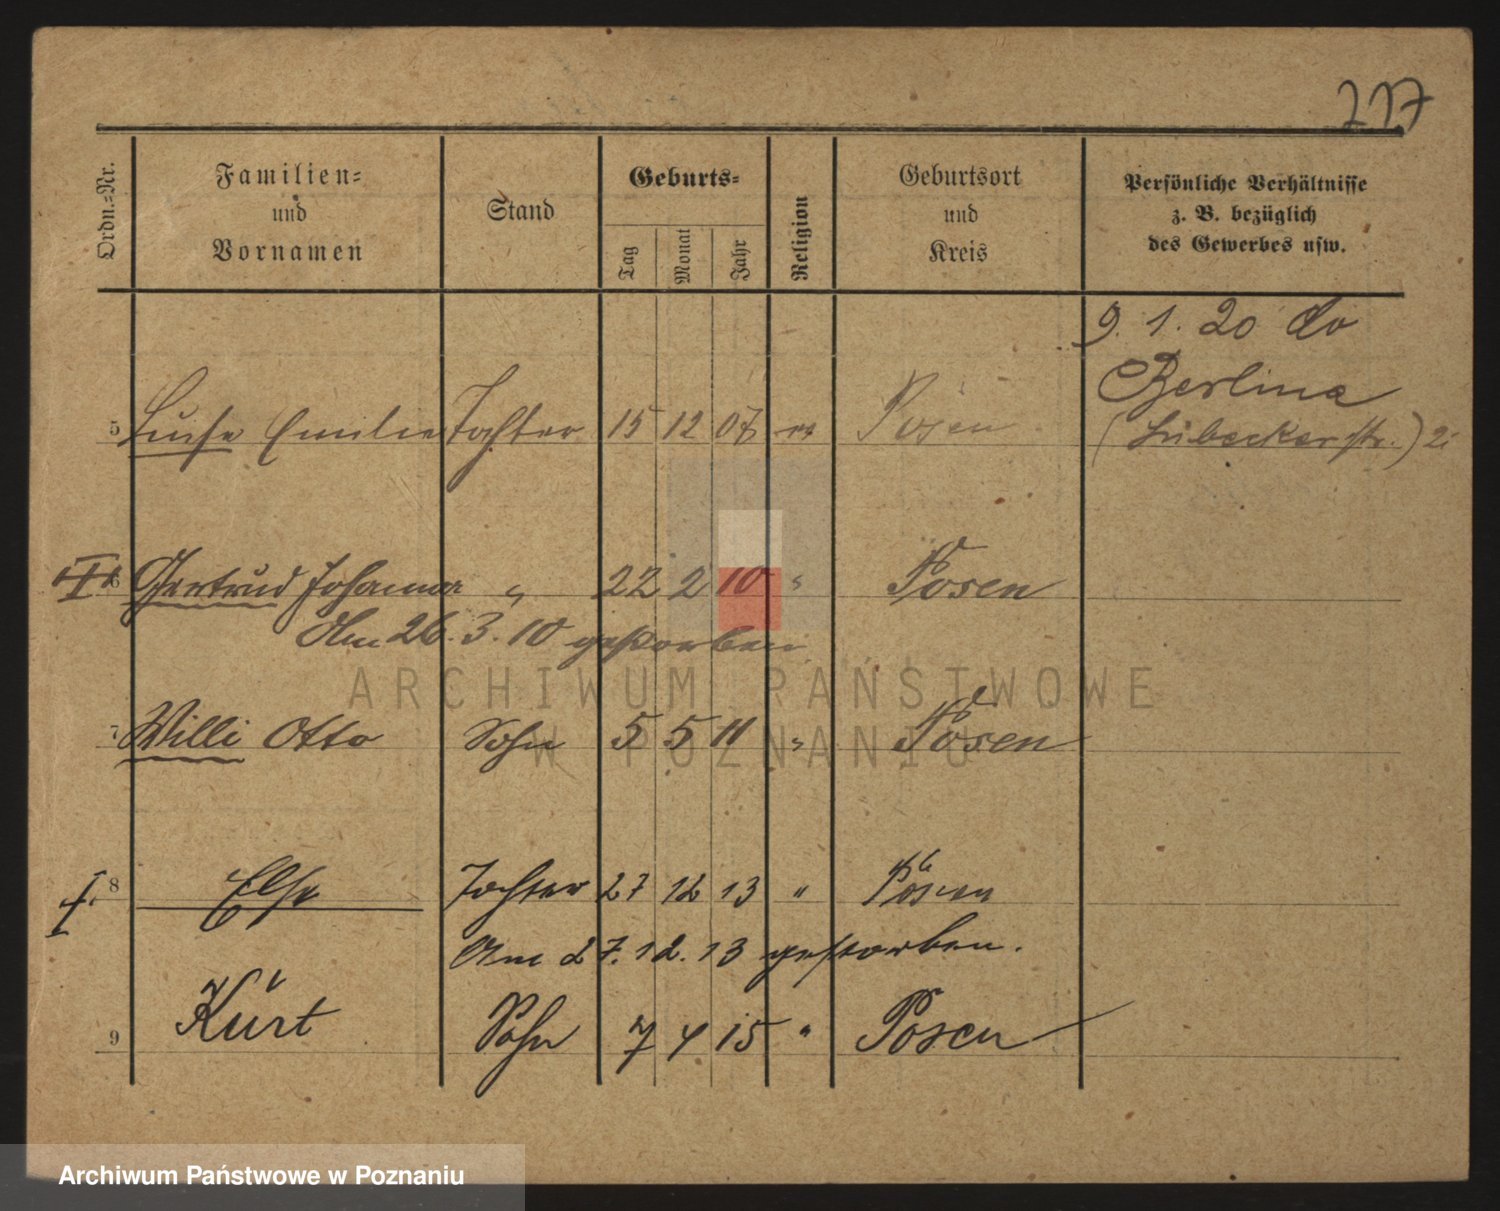 217
Ordn.=Nr. Familien= und Vornamen Stand Geburts= Tag Monat Jahr Religion Geburtsort und Kreis Persönliche Verhältnisse z. B. bezüglich des Gewerbes usw.
9. 1. 20
Berlin
5 Luise Emilie Tochter 15 12 07 ev Posen (Lübecker str.) 2
6 Gertrud Johanna " 22 2 10 " Posen
Am 26. 3. 10 gestorben
ARCHIWUM PAŃSTWOWE
7 Willi Otto Sohn 5 5 11 " Posen
W POZNANIU
8 Else Tochter 27 12 13 " Posen
Am 27. 12. 13 gestorben.
9 Kurt Sohn 7 4 15 " Posen
Archiwum Państwowe w Poznaniu